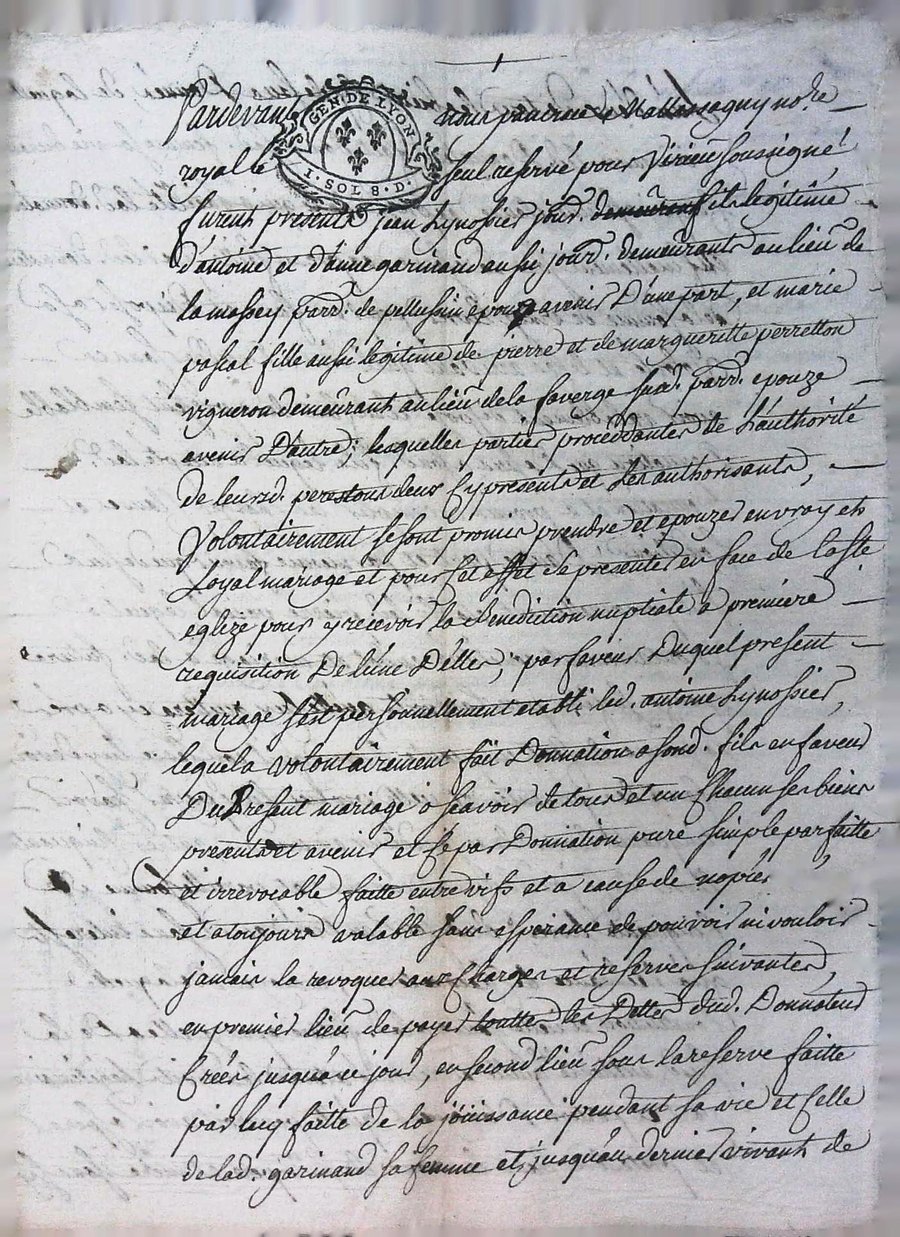 Pardevant nous pancrace Mattassagny no.re
GEN · DE LYON
1 · SOL 8 · D ·
royal le seul reservé pour Virieu soussigné
furent presents jean Lynossier jour.r demeurant fils legitime
d'antoine et d'anne garinaud aussi jour.r demeurants au lieu de
la massey parr.e de pellussin epoux avenir D'une part, et marie
pascal fille aussi legitime de pierre et de margueritte perretton
vigneron demeurant au lieu de la faverge susd. parr.e epouze
avenir D'autre; lesquelles parties proceddantes de L'authorité
de leursd. peres tous deux Cy presents et Les authorisants,
Volontairement se sont promis prendre et epouzer en vray et
Loyal mariage et pour cet effet se presenter en face de la ste
eglize pour y recevoir la Benediction nuptiale a premiere
requisition De l'une D'elles; par faveur Duquel present
mariage s'est personnellement etabli led. antoine Lynossier,
lequel a volontairement fait Donnation a sond. fils en faveur
Du Present mariage a scavoir de tous et un Chacun ses biens
presents et avenir et ce par Donnation pure simple parfaitte
et irrevocable faitte entre vifs et a cause de nopces
et a toujours valable sans esperance de pouvoir ni vouloir
jamais la revoquer aux Charges et reserves suivantes,
en premier lieu de payer toutte les Dettes dud. Donnateur
Créés jusqu'a ce jour, en second lieu sous la reserve faitte
par luy faitte de la joüissance pendant sa vie et Celle
de lad. garinaud sa femme et jusqu'au dernier vivant de